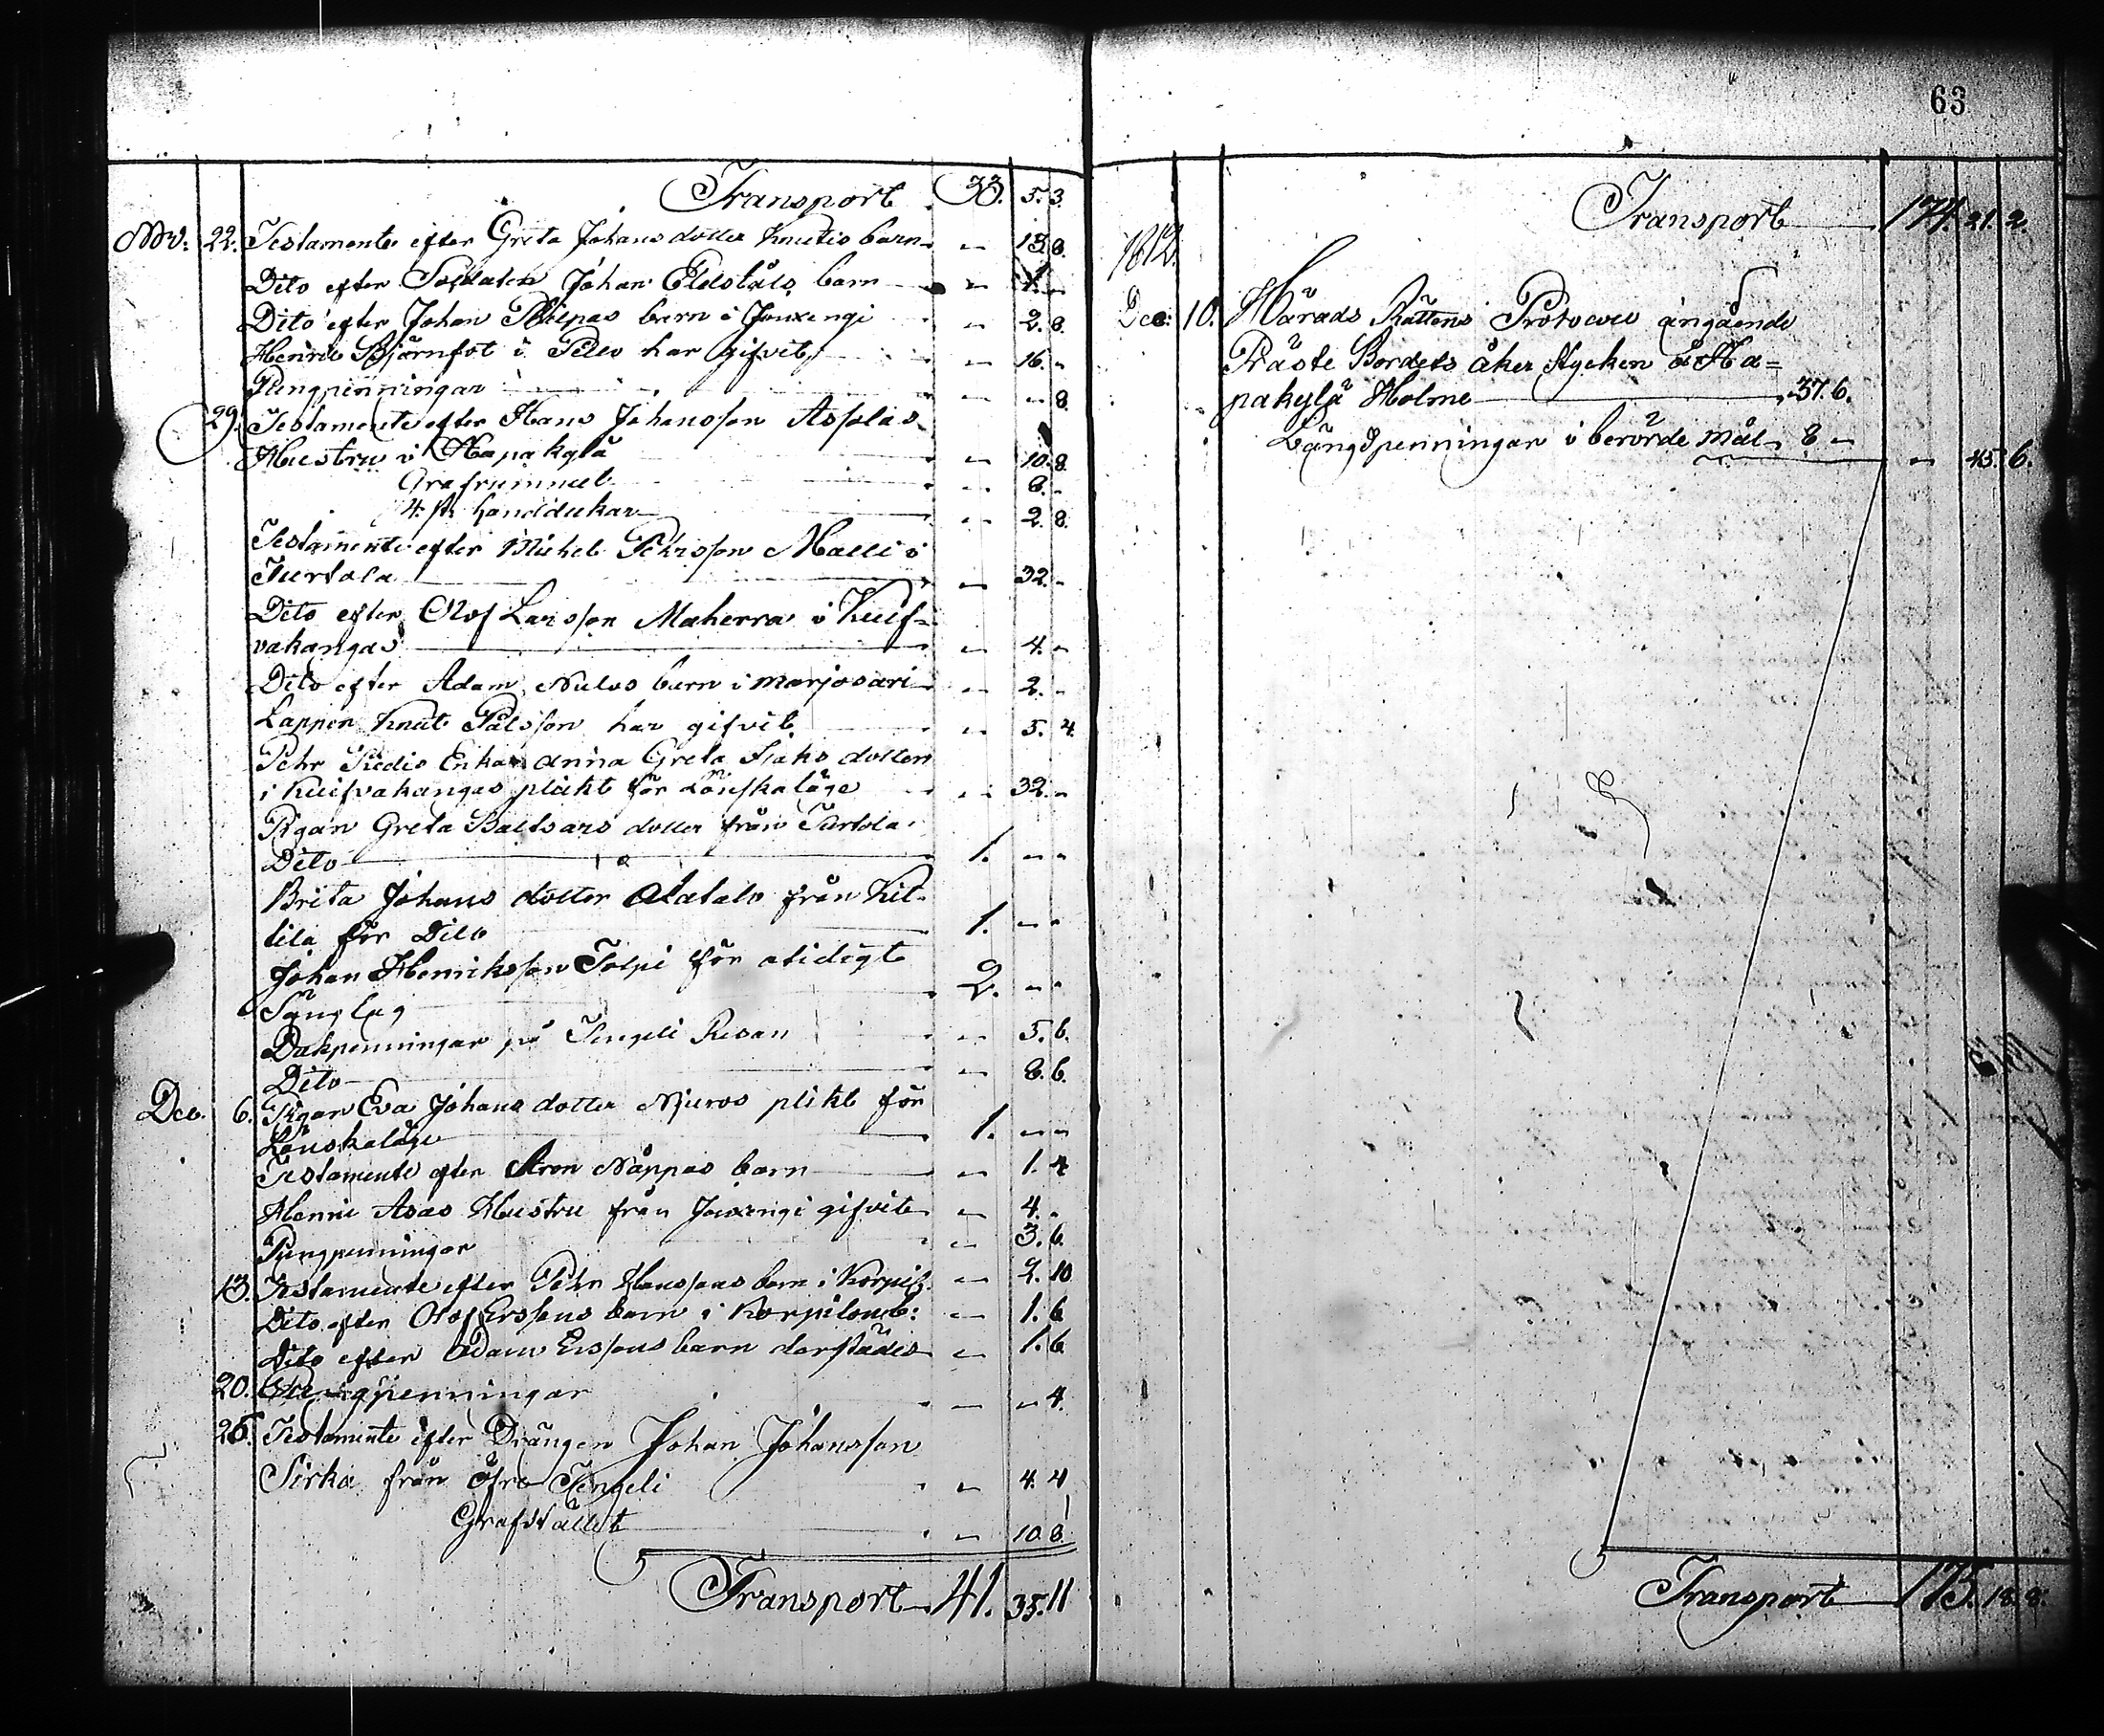 Transport 33. 5. 3.
Nov. 22. Testamente efter Greta Johans dotter Knutis barn - 13. 8.
Dito efter Soldaten Johan Eldståls barn - 1. -
Dito efter Johan Philpas barn i Jouxengi - 2. 8.
Henric Björnfot i Pello har gifvit - 16. -
Pungpenningar - - 8.
29. Testamente efter Hans Johansson Asplas
Hustru i Hapakylä - 10. 8.
Grafrummet - 8. -
4. st. handdukar - 2. 8.
Testamente efter Michel Pehrsson Malli i
Turtola - 32. -
Dito efter Olof Larsson Maherra i Kuif-
vakangas - 4. -
Dito efter Adam Nulus barn i Marjosari - 2. -
Lappen Knut Pålsson har gifvit - 5. 4.
Pehr Enka Anna Greta Isaks dotter
i Kuifvakangas plikt för Lönskaläge - 32. -
Pigan Greta Baltsars dotter från Turtola
Dito 1. - -
Brita Johans dotter Alatalo från Kit-
tila för Dito 1. - -
Johan Henriksson Tolpi för otidigt
Sänglag 2. - -
Dakpenningar på Tengeli Resan - 5. 6.
Dito - 8. 6.
Dec. 6. Pigan Eva Johans dotter Niuros plikt för
Lönskaläge 1. - -
Testamente efter Aron Näppas barn - 1. 4
Henric Asas Hustru från Jouxengi gifvit - 4. -
Pungpenningar - 3. 6.
13. Testamente efter Pehr Hanssons barn i Korpil: - 2. 10
Dito efter Olof Erssons barn i Korpilomb: - 1. 6
Dito efter Adam Erssons barn derstädes - 1. 6
20. Pungpenningar - - 4.
26. Testamente efter Drängen Johan Johansson
Sirka från Öfre Tengeli - 4. 4
Grafstället - 10. 8.
Transport 41. 35. 11
63
Transport 174. 21. 2.
1812.
Dec: 10. Härads Rättens Protocoll angående
Präste Bordets åker stycken å Ha=
pakylä Holme 37. 6.
Längdpenningar i berörde mål 8 -
- 45. 6.
Transport 175. 18. 8.